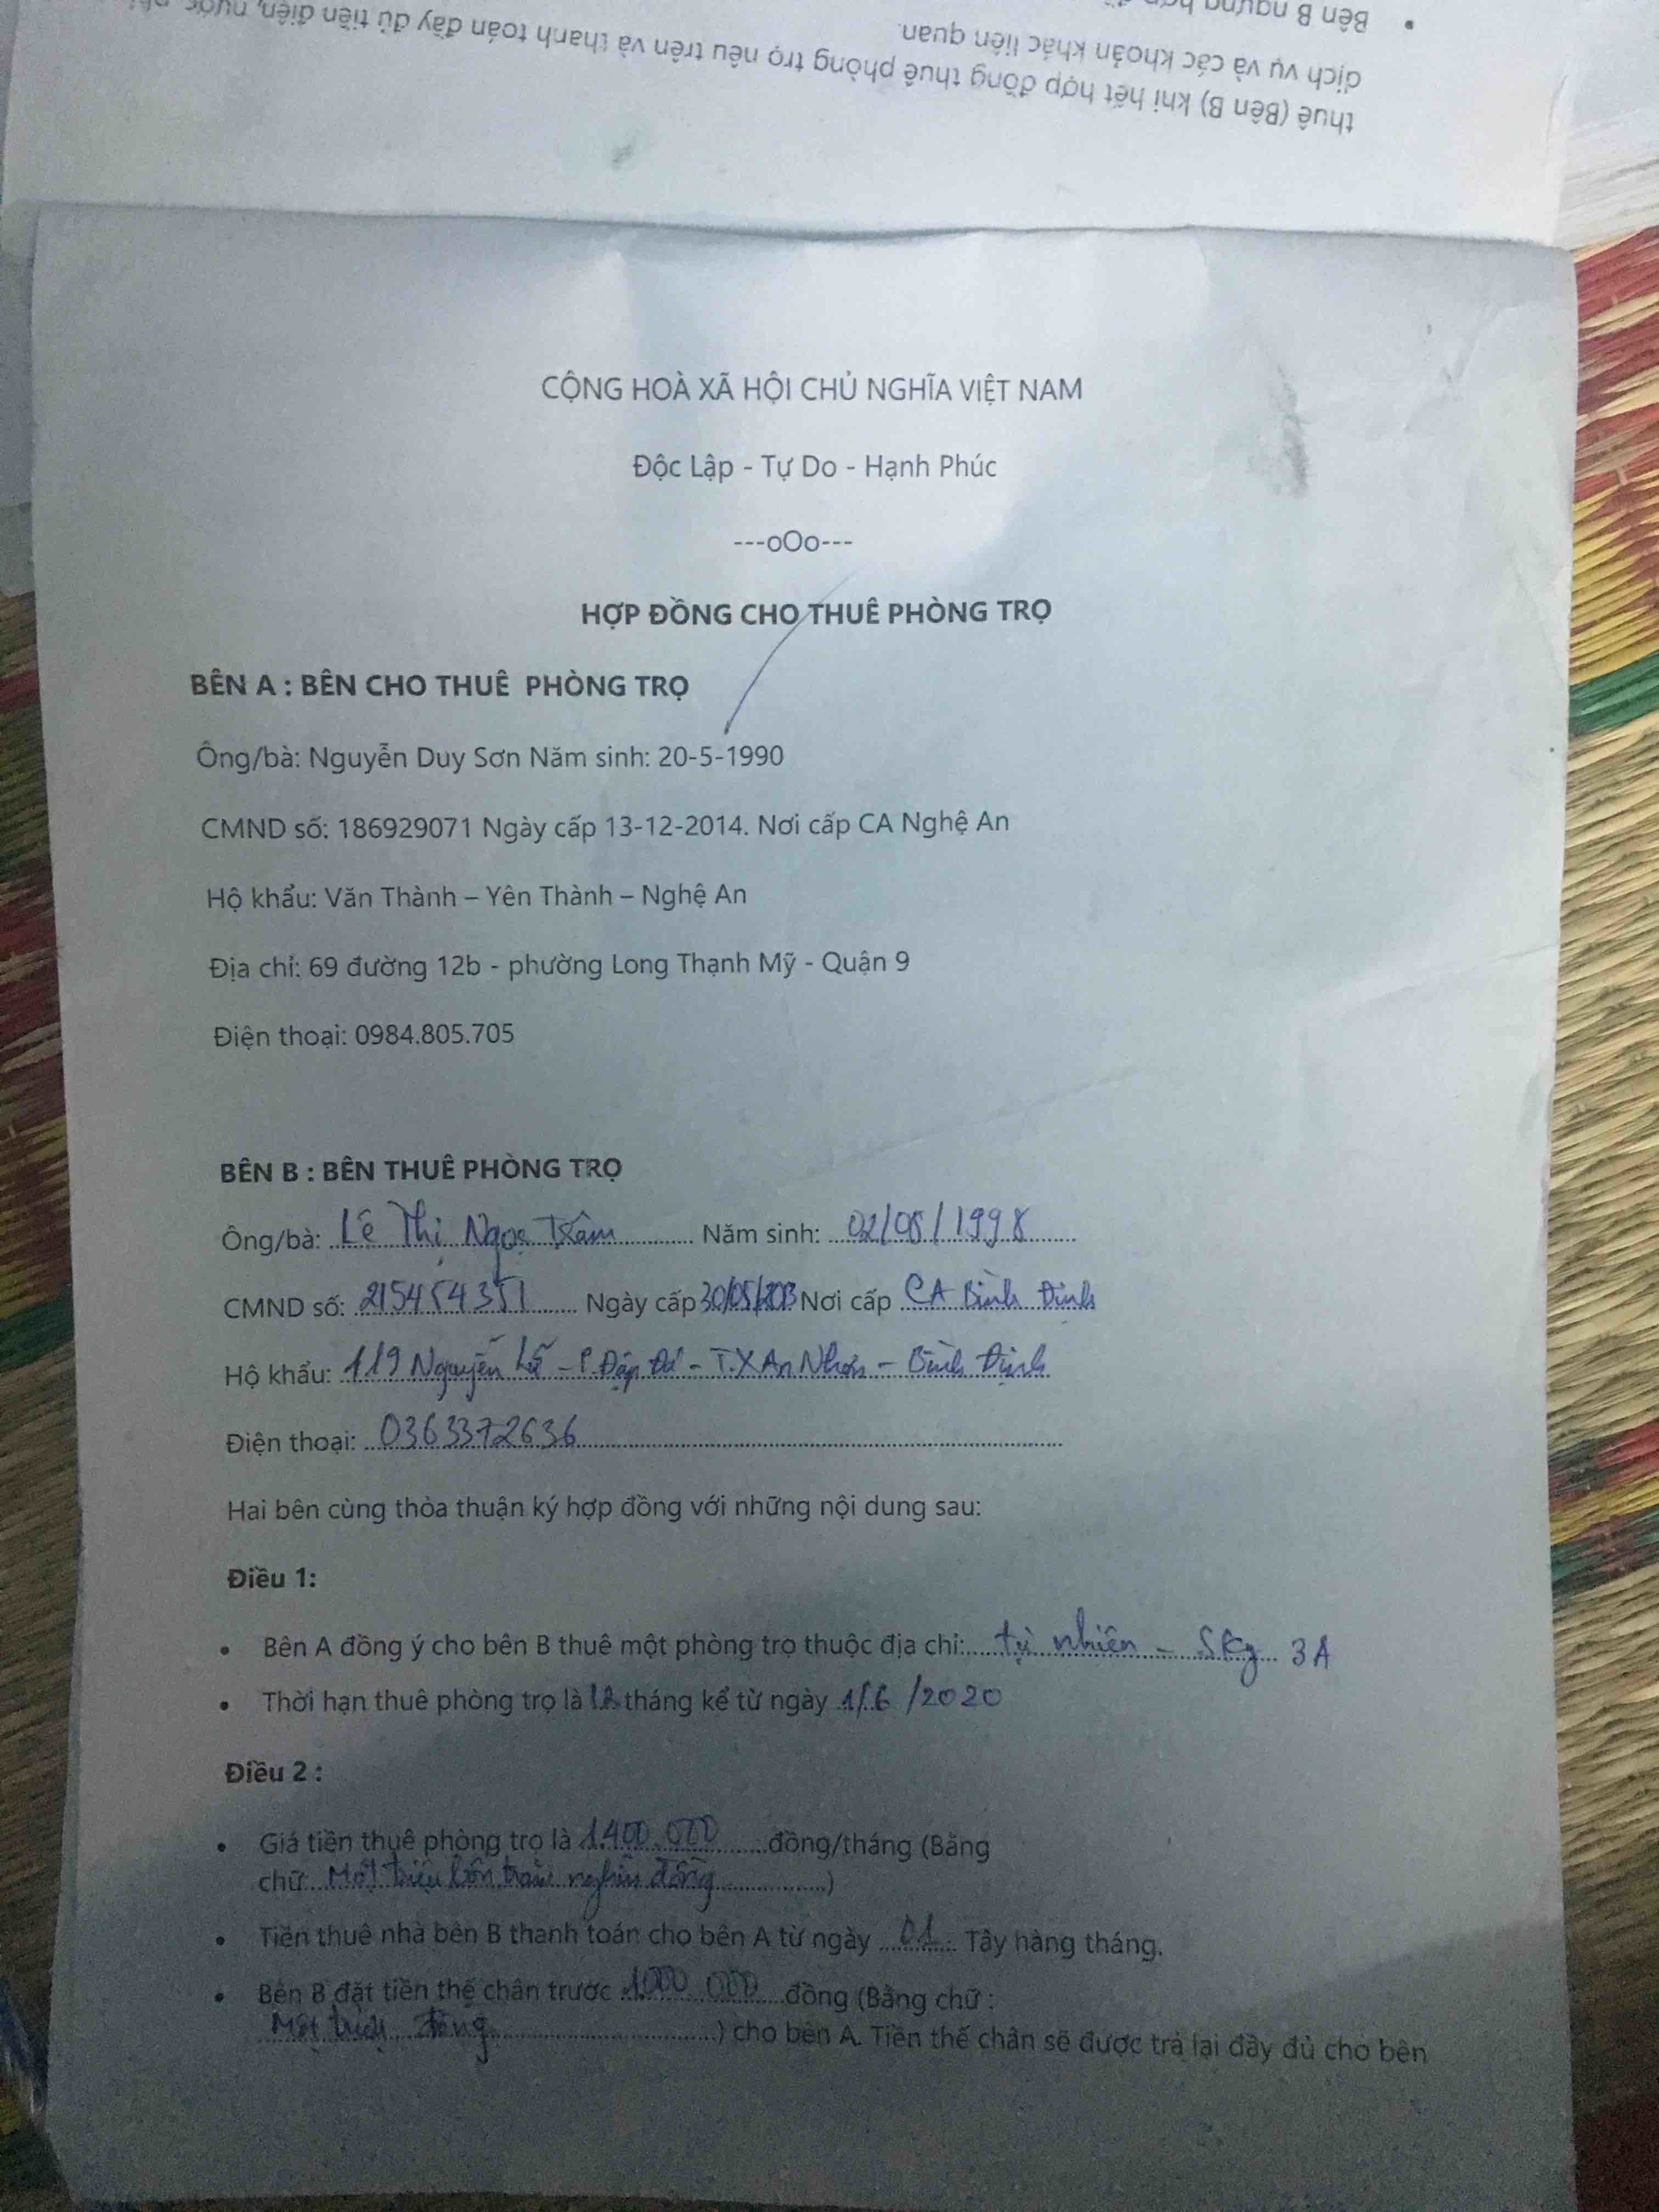 thuê (Bên B) khi hết hợp đồng thuê phòng trọ nêu trên và thanh toán đầy đủ tiền điện, nước,
dịch vụ và các khoản khác liên quan.
Bên B ngừng
CỘNG HOÀ XÃ HỘI CHỦ NGHĨA VIỆT NAM
Độc Lập - Tự Do - Hạnh Phúc
---oOo---
HỢP ĐỒNG CHO THUÊ PHÒNG TRỌ
BÊN A : BÊN CHO THUÊ PHÒNG TRỌ
Ông/bà: Nguyễn Duy Sơn Năm sinh: 20-5-1990
CMND số: 186929071 Ngày cấp 13-12-2014. Nơi cấp CA Nghệ An
Hộ khẩu: Văn Thành – Yên Thành – Nghệ An
Địa chỉ: 69 đường 12b - phường Long Thạnh Mỹ - Quận 9
Điện thoại: 0984.805.705
BÊN B : BÊN THUÊ PHÒNG TRỌ
Ông/bà: Lê Thị Ngọc Trâm Năm sinh: 02/08/1998
CMND số: 215454351 Ngày cấp 30/05/2013 Nơi cấp CA Bình Định
Hộ khẩu: 119 Nguyễn Lữ - P. Đập Đá - T.X An Nhơn - Bình Định
Điện thoại: 0363372636
Hai bên cùng thỏa thuận ký hợp đồng với những nội dung sau:
Điều 1:
• Bên A đồng ý cho bên B thuê một phòng trọ thuộc địa chỉ: tự nhiên - Sky 3A
• Thời hạn thuê phòng trọ là 12 tháng kể từ ngày 1/6/2020
Điều 2 :
• Giá tiền thuê phòng trọ là 1.400.000 đồng/tháng (Bằng
chữ Một triệu bốn trăm nghìn đồng )
• Tiền thuê nhà bên B thanh toán cho bên A từ ngày 01 Tây hàng tháng.
• Bên B đặt tiền thế chân trước 1000 000 đồng (Bằng chữ :
Một triệu đồng ) cho bên A. Tiền thế chân sẽ được trả lại đầy đủ cho bên